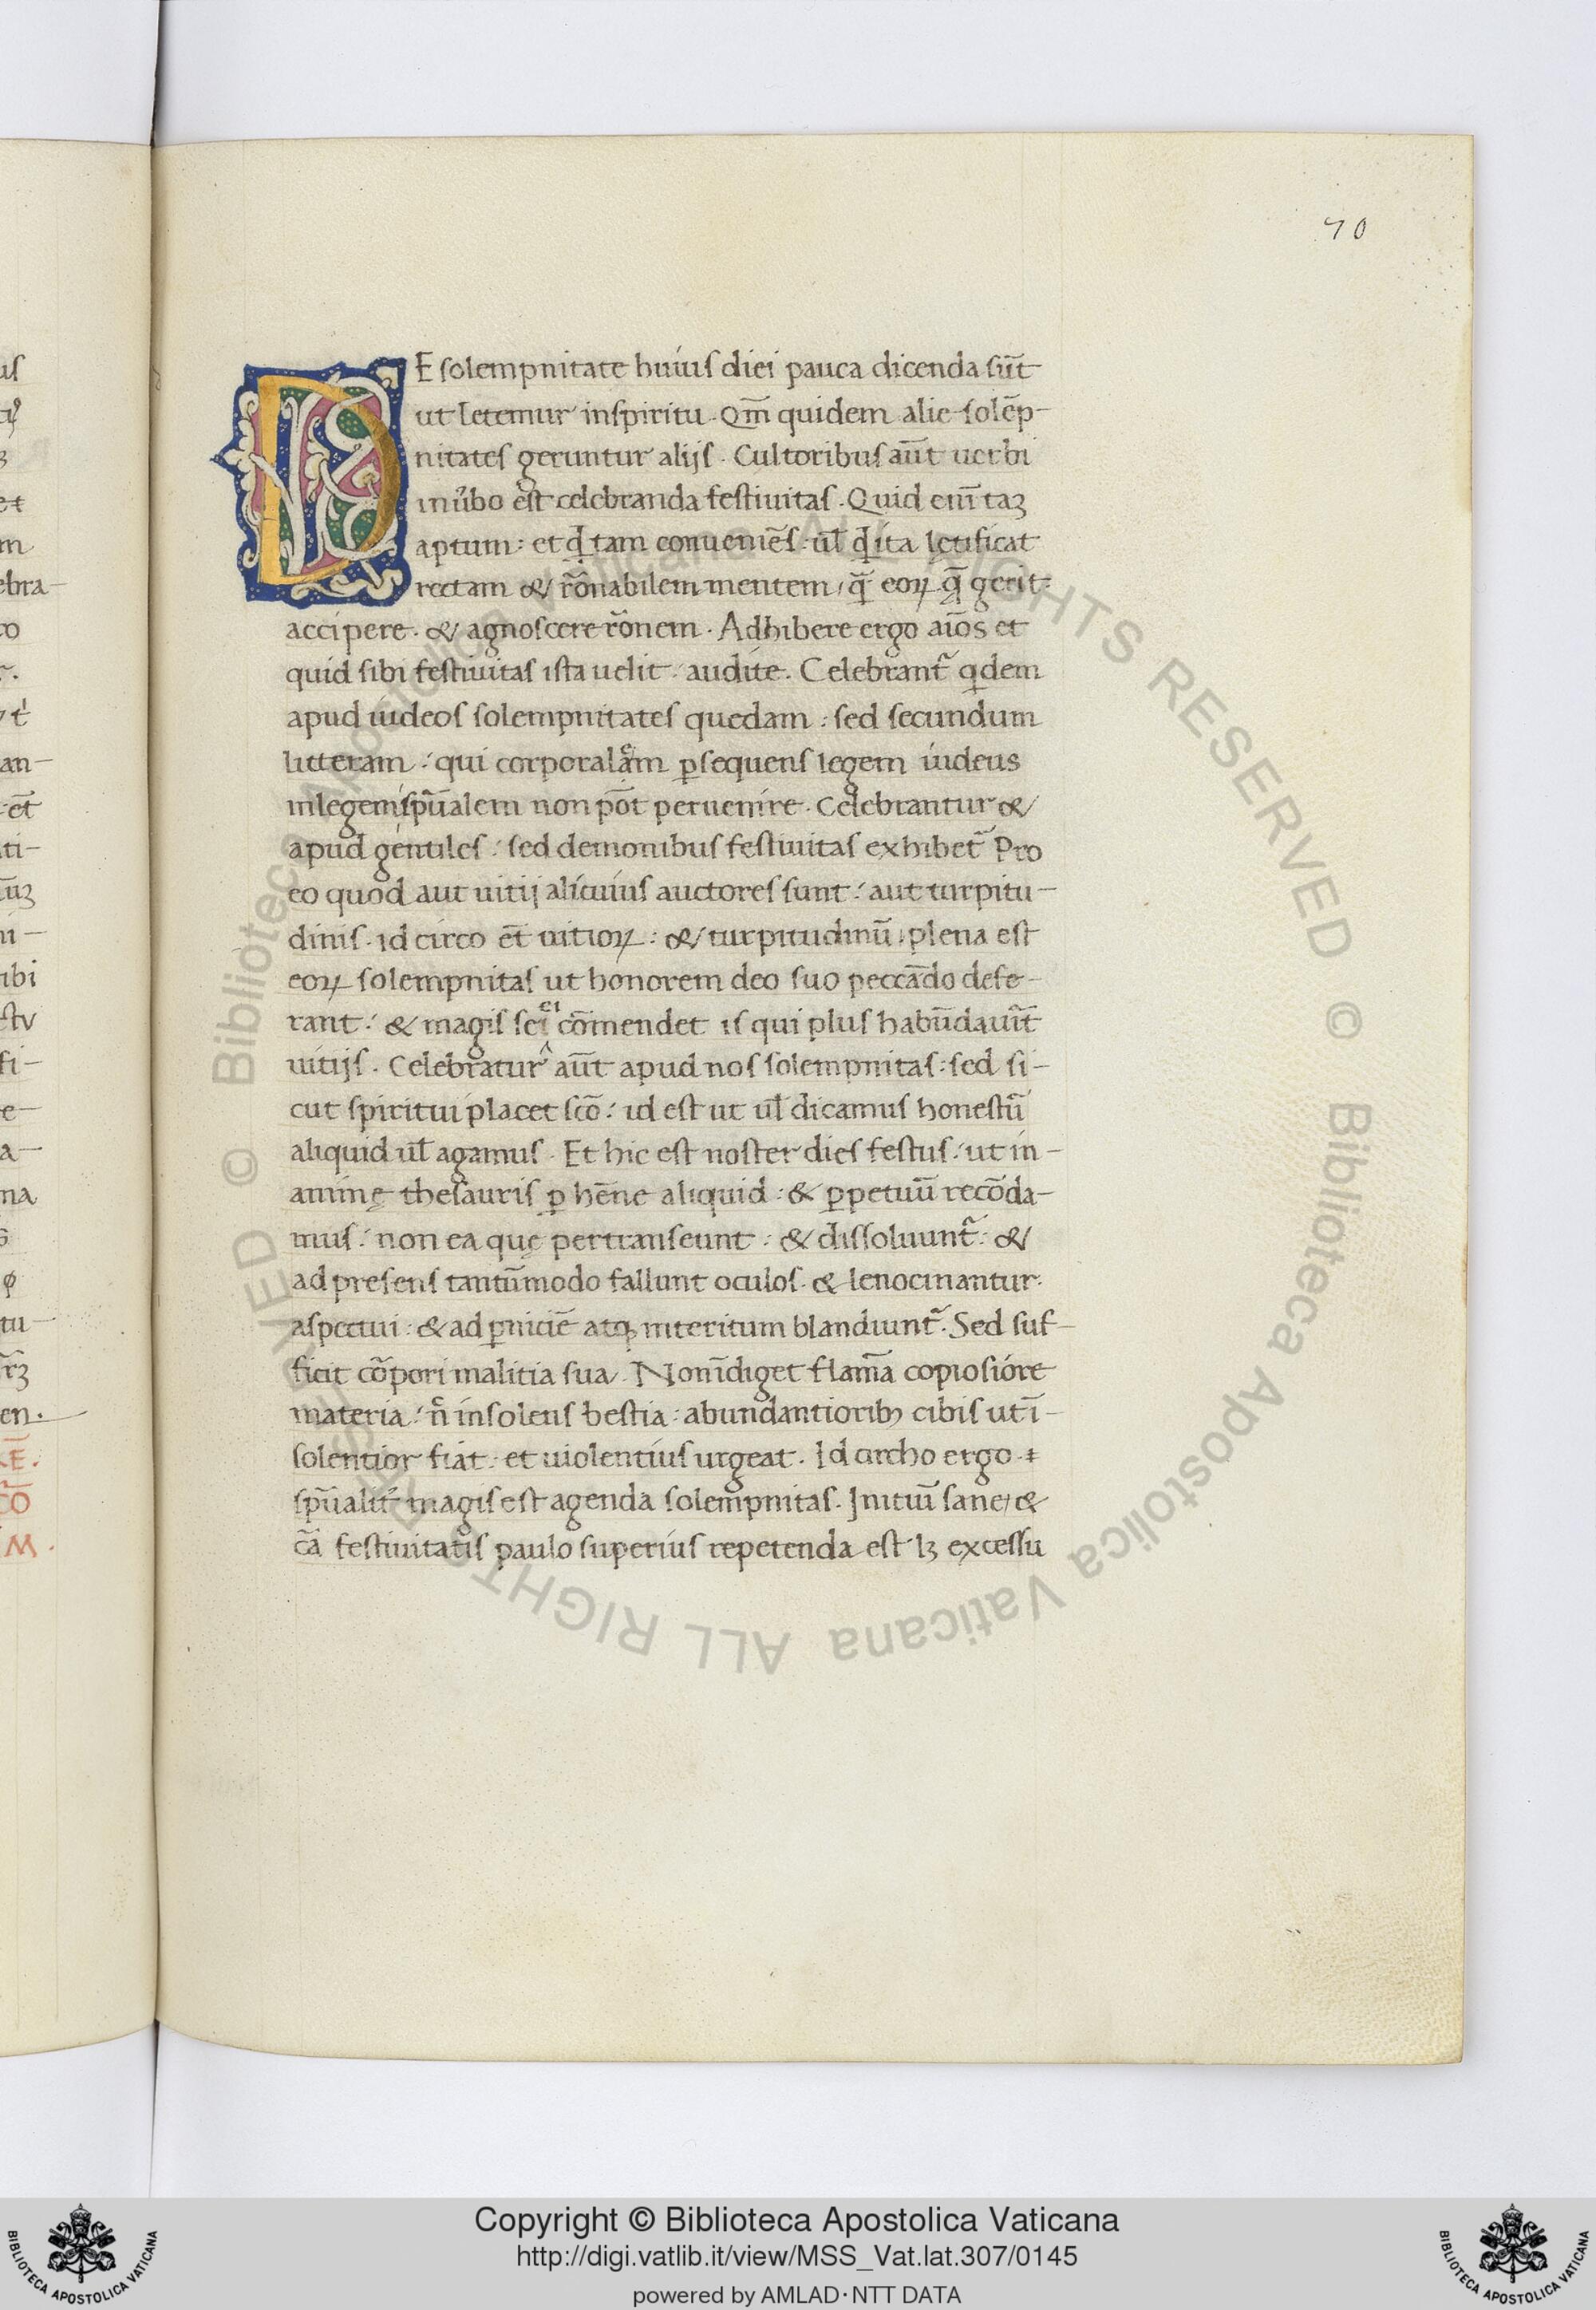 70
DE solempnitate huius diei pauca dicenda sūt
ut letemur inspiritu. Qm̄ quidem alie solēp-
nitates geruntur alijs. Cultoribus aūt uerbi
inu̓bo est celebranda festiuitas. Quid eni̅ taꝫ
aptum: et qd̄ tam conueniēs: ul̄ qd̄ ita lętificat
rectam & rōnabilem mentem, q̄ eoꝝ q̄ gerit:
accipere. & agnoscere rōnem. Adhibete ergo aīos et
quid sibi festiuitas ista uelit: audite. Celebrant᷑ qdem
apud iudeos solempnitates quedam: sed secundum
litteram: qui corporalem ꝑsequens legem iudeus
inlegem spūalem non pōt peruenire. Celebrantur &
apud gentiles: sed demonibus festiuitas exhibet᷑ Pro
eo quod aut uitij alicuius auctores sunt: aut turpitu-
dinis. id circo et̄ uitioꝝ: & turpitudinū plena est
eoꝝ solempnitas ut honorem deo suo peccādo defe-
rant: & magis se ei cōmendet is qui plus habūdauit̄
uitijs. Celebratur aūt apud nos solempnitas: sed si-
cut spiritui placet scō: id est ut ul̄ dicamus honestū
aliquid ul̄ agamus. Et hic est noster dies festus: ut in-
animę thesauris ꝑhēne aliquid: & ꝑpetuū recōda-
mus: non ea quę pertranseunt: & dissoluunt᷑: &
ad presens tantūmodo fallunt oculos. & lenocinantur
aspectui: & ad ꝑniciē atqꝫ interitum blandiunt᷑. Sed suf-
ficit cōpori malitia sua. Non īdiget flam̄a copiosiore
materia: n̄ insolens bestia: abundantioribꝫ cibis ut ī-
solentior fiat: et uiolentius urgeat. Id circho ergo
spūalit᷑ magis est agenda solempnitas. Initiū sane, &
cā festiuitatis paulo superius repetenda est lꝫ excessu
© Biblioteca Apostolica Vaticana ALL RIGHTS RESERVED © Biblioteca Apostolica Vaticana ALL RIGHTS RESERVED
Copyright © Biblioteca Apostolica Vaticana
http://digi.vatlib.it/view/MSS_Vat.lat.307/0145
powered by AMLAD·NTT DATA
BIBLIOTECA APOSTOLICA VATICANA
BIBLIOTECA APOSTOLICA VATICANA